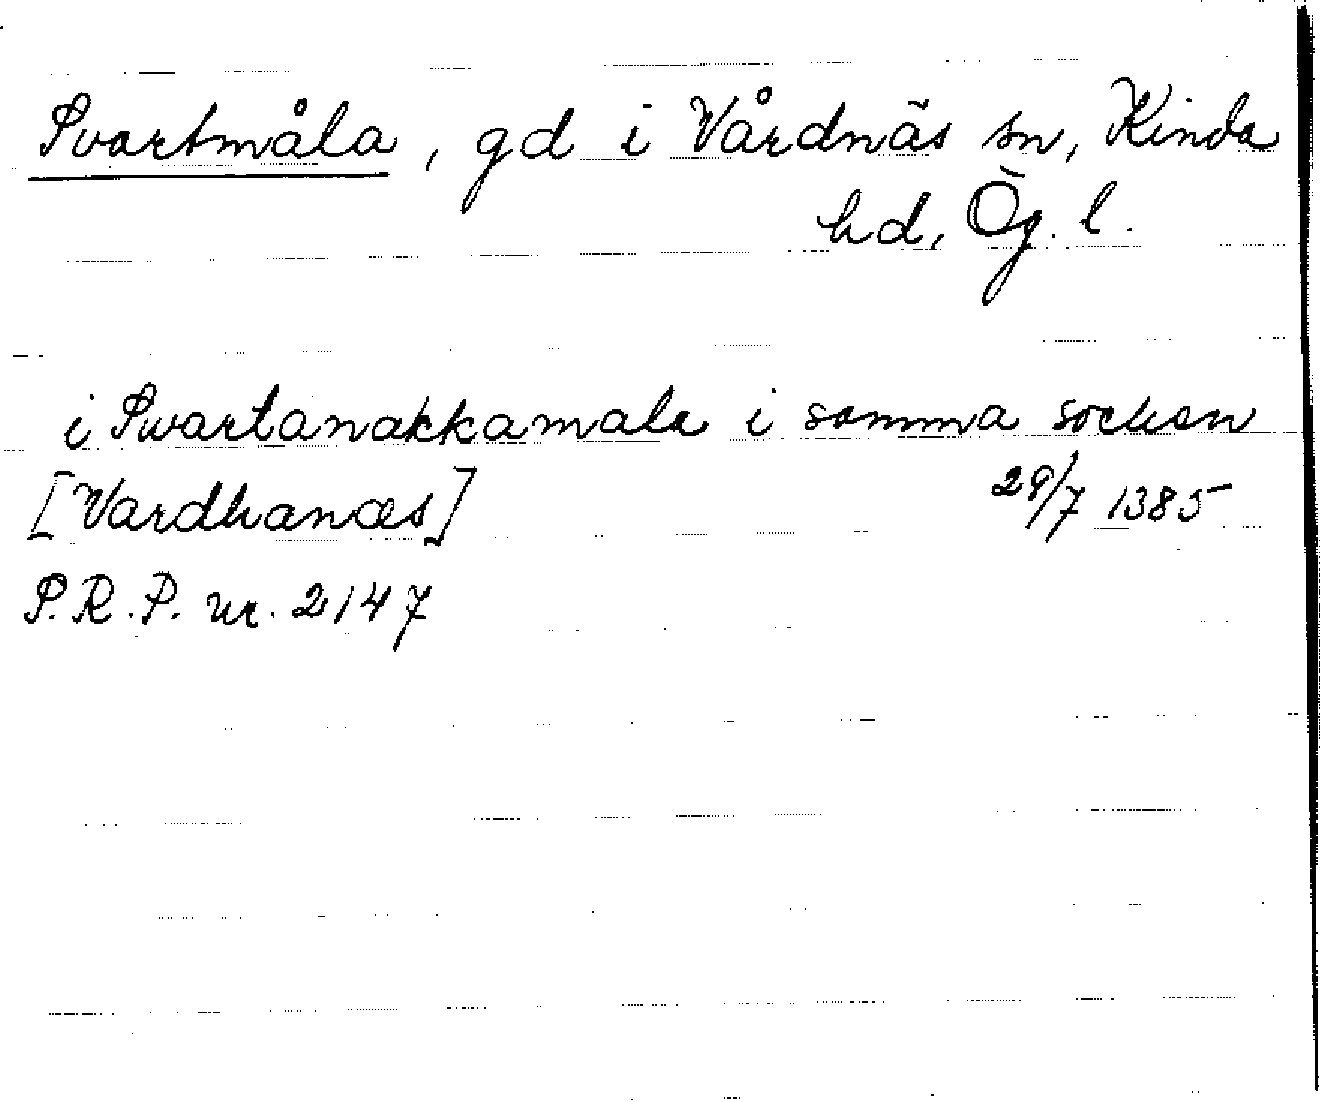 Svartmåla, gd i Vårdnäs sn, Kinda
hd, Ög. l.
i Swartanakkamala i samma sockan
[Vardhanæs] 29/7 1385
P.R.P. nr. 2147